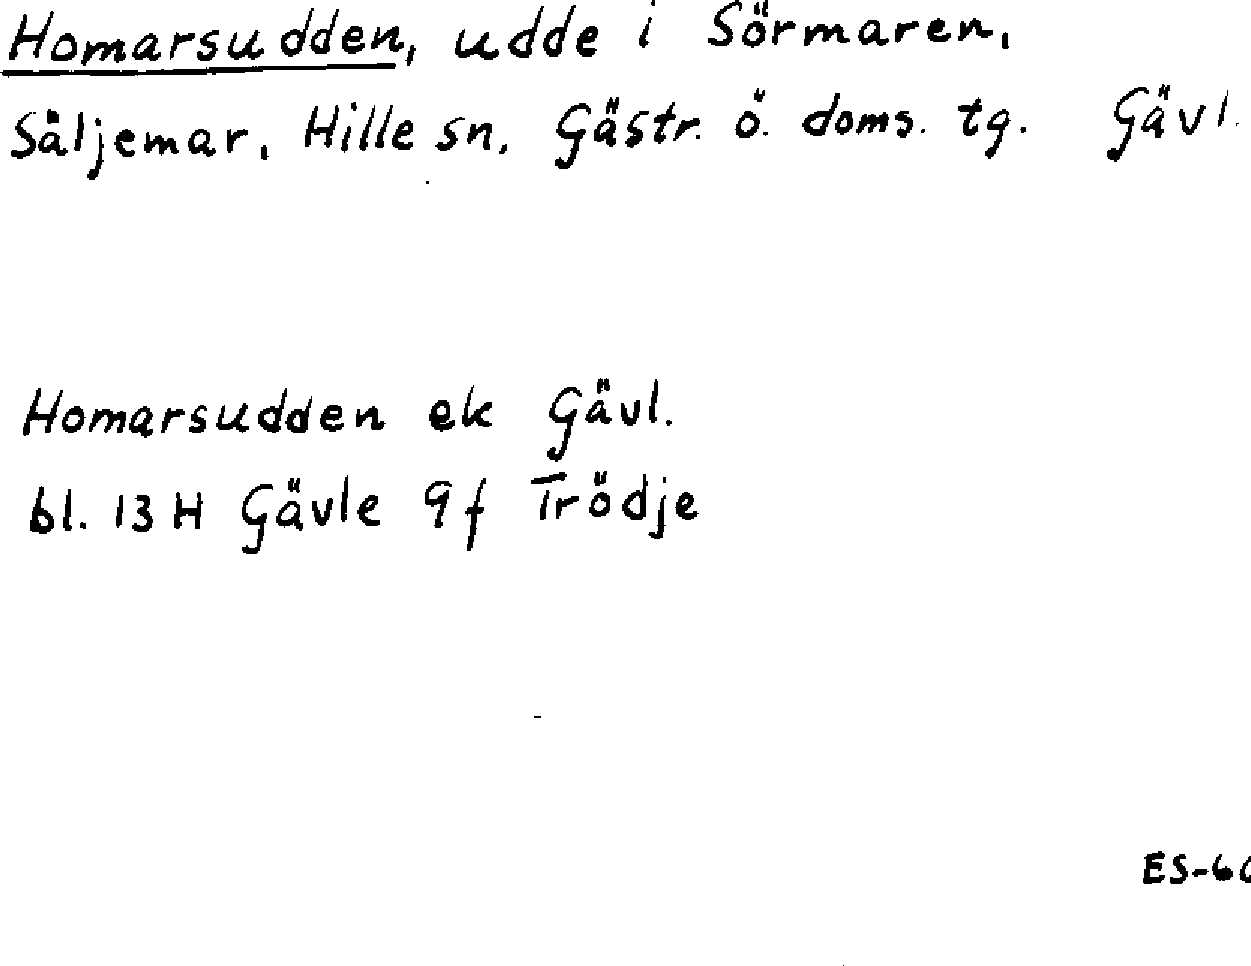 Homarsudden, udde i Sörmaren,
Säljemar, Hille sn, Gästr. ö. doms. tg. Gävl.
Homarsudden ek Gävl.
bl. 13 H Gävle 9f Trödje